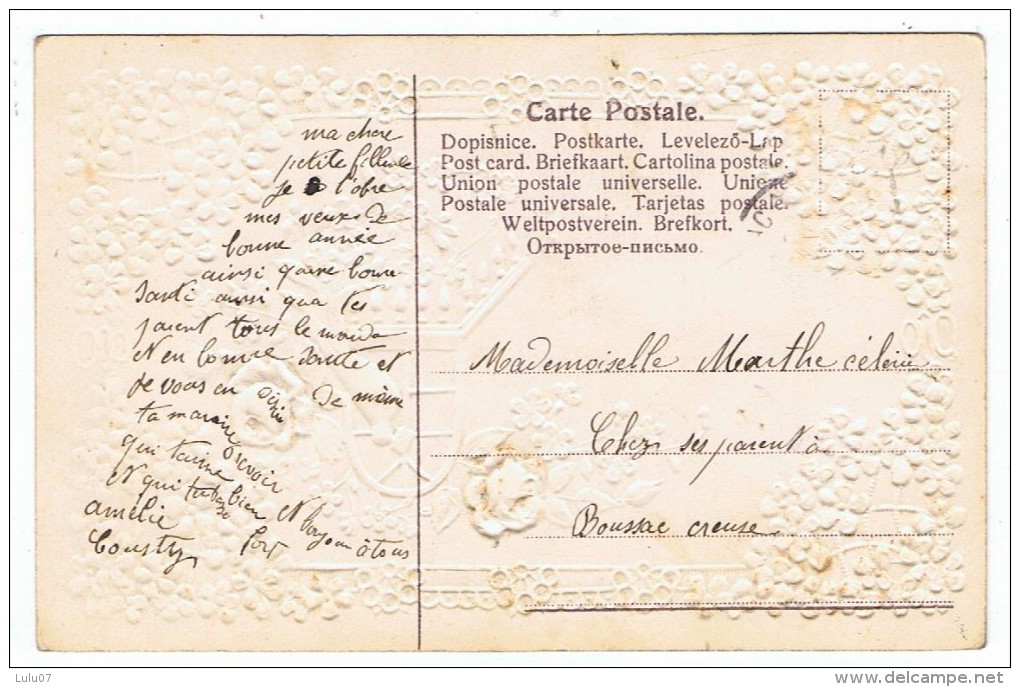 ma chere
petite filleule
je l'ofre
mes veux de
bonne année
ainsi qu'une bonne
santé ainsi qua tes
parent tous le monde
et en bonne sante et
de vous en de même
ta maraine
qui t'aime
et qui
bien
et bonjour à tous
amélie
Cousty
Carte Postale.
Dopisnice. Postkarte. Levelező-Lap
Post card. Briefkaart. Cartolina postale.
Union postale universelle. Unione
Postale universale. Tarjetas postale.
Weltpostverein. Brefkort.
Открытое-письмо.
Mademoiselle Marthe céline
Chez ses parent à
Boussac creuse
1910
Lulu07
delcampe.net